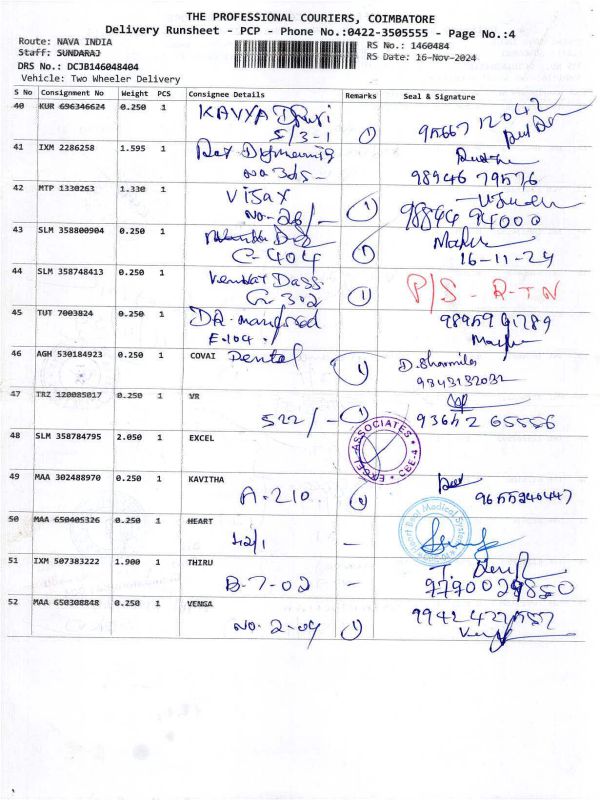 THE PROFESSIONAL COURIERS, COIMBATORE
Delivery Runsheet - PCP - Phone No.:0422-3505555 - Page No.:4
Route: NAVA INDIA
RS No.: 1460484
Staff: SUNDARAJ
RS Date: 16-Nov-2024
DRS No.: DCJB146048404
Vehicle: Two Wheeler Delivery
S No Consignment No Weight PCS Consignee Details Remarks Seal & Signature
40 KUR 696346624 0.250 1 KAVYA
5/3-1 1
41 IXM 2286258 1.595 1
NO 305- 98946 79576
42 MTP 1330263 1.330 1 VIJAY
NO-26/- 1 98844 94000
43 SLM 358800904 0.250 1
C-404 1 16-11-24
44 SLM 358748413 0.250 1 Venkat Dass
G-302 1 P/S - R-TN
45 TUT 7003824 0.250 1 DR.
E-104
46 AGH 530184923 0.250 1 COVAI Dental 1 D. Sharmila
47 TRZ 120085017 0.250 1 VR
522/- 1 93642 65556
48 SLM 358784795 2.050 1 EXCEL
EXCEL ASSOCIATES CBE-4
49 MAA 302488970 0.250 1 KAVITHA
A-210
50 MAA 650405326 0.250 1 HEART
Heart Beat Medical Systems
12/1 -
51 IXM 507383222 1.900 1 THIRU
B-7-02 -
52 MAA 650308848 0.250 1 VENGA
NO-2-04 1